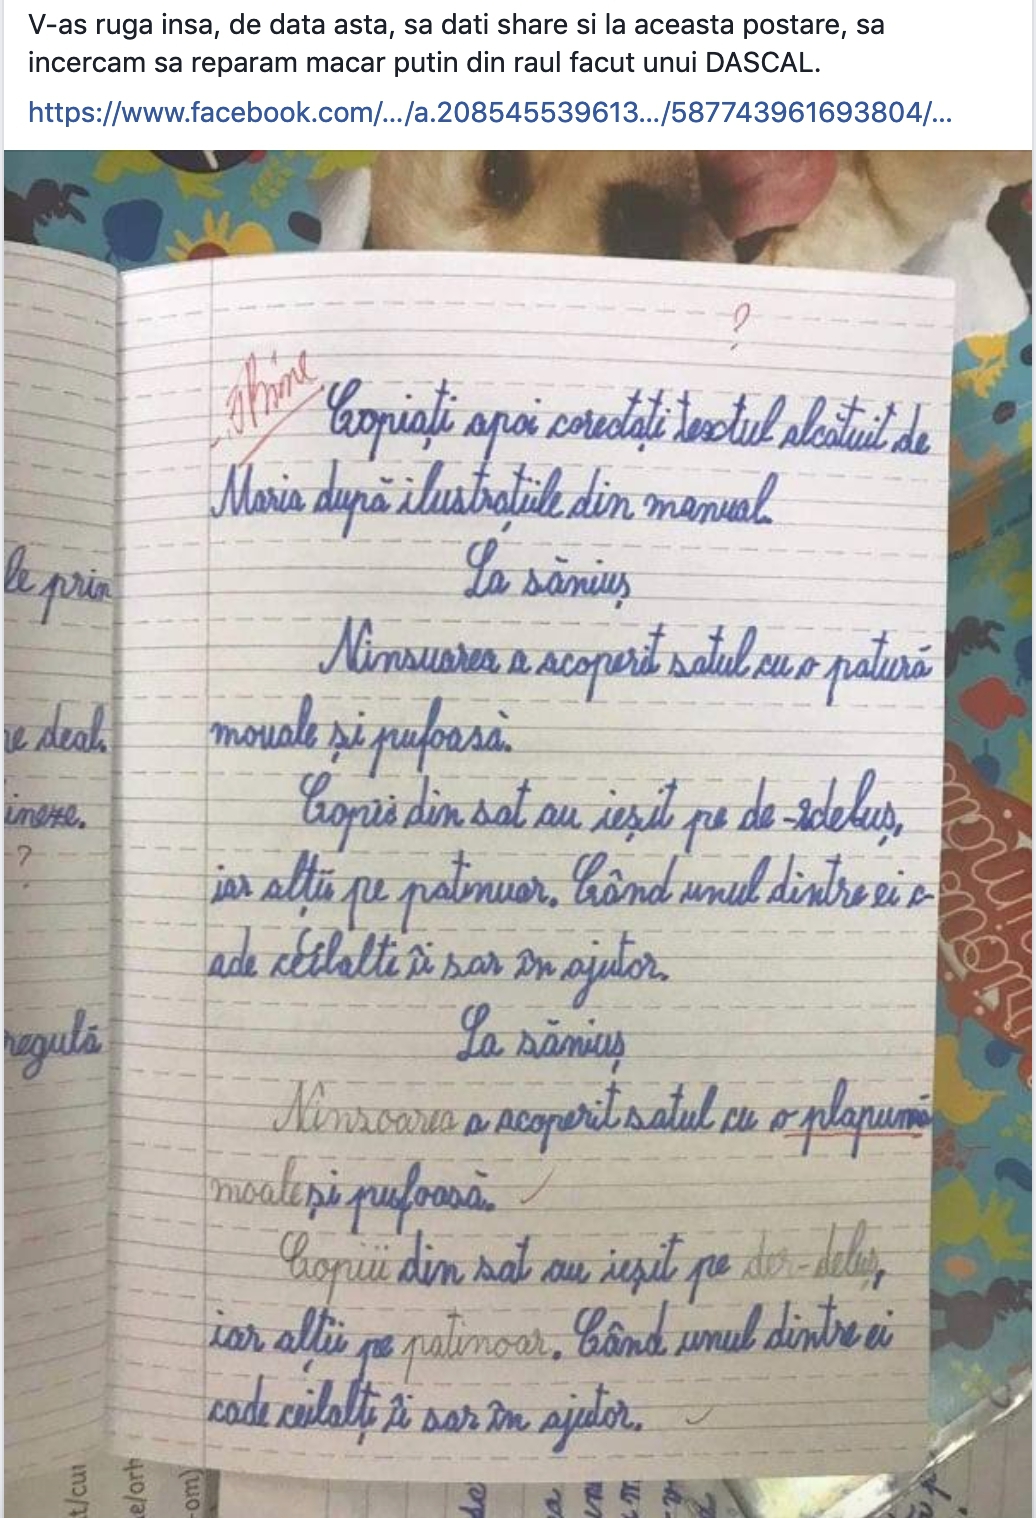 V-as ruga insa, de data asta, sa dati share si la aceasta postare, sa
incercam sa reparam macar putin din raul facut unui DASCAL.
https://www.facebook.com/.../a.208545539613.../587743961693804/...
?
Copiați apoi corectați textul alcătuit de
Maria după ilustrațiile din manual.
La săniuș
Ninsuarea a acoperit satul cu o patură
mouale și pufoasă.
Copii din sat au ieșit pe de-rdeluș,
iar alții pe patinuar. Când unul dintre ei c-
ade ceilalti îi sar în ajutor.
La săniuș
Ninsoarea a acoperit satul cu o plapumă
moale și pufoasă.
Copiii din sat au ieșit pe der-deluș,
iar alții pe patinoar. Când unul dintre ei
cade ceilalți îi sar în ajutor.
le prin
re deal.
?
regulă